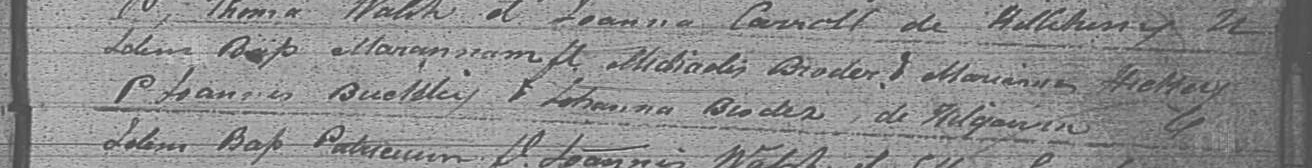 P. Thoma Walsh et Joanna Carroll de
Idem Bap Mariannam fl. Michaelis Broder & Marianna Hickey
P Joannis Buckley & Johanna Broder, de Kilgarvin
Idem Bap Patricium f. Joannis Walsh et